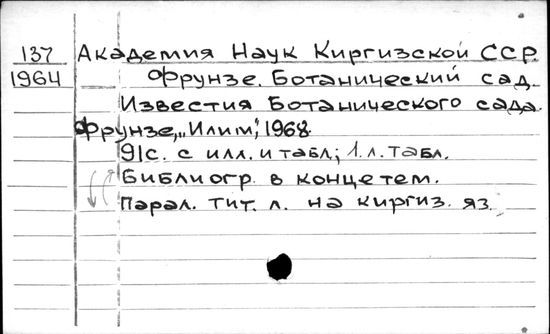 137 Академия Наук Киргизской ССР.
1964 Фрунзе. Ботанический сад.
Известия Ботанического сада.
Фрунзе, „Илим", 1968.
91с. с илл. и табл; 1.л. табл.
Библиогр. в конце тем.
Парал. тит. л. на киргиз. яз.